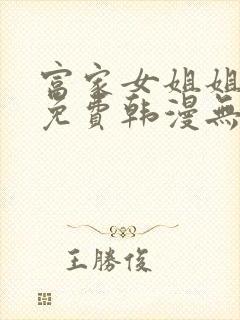 富家女姐姐
免費韩漫無
王勝俊